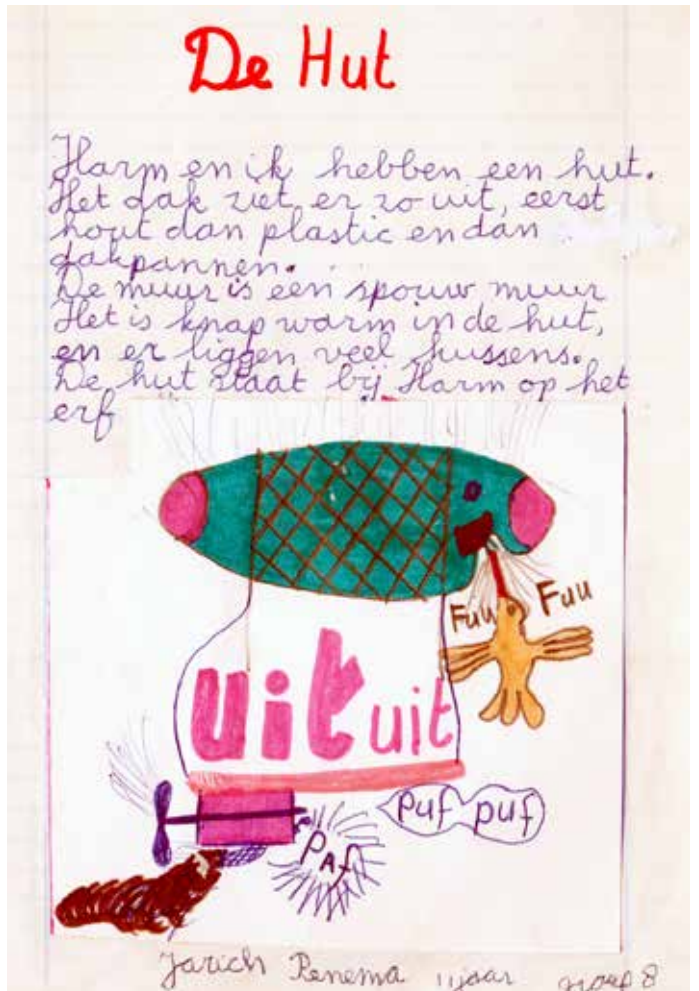 De Hut
Harm en ik hebben een hut.
Het dak ziet er zo uit, eerst
hout dan plastic en dan
dakpannen.
De muur is een spouw muur
Het is knap warm in de hut,
en er liggen veel kussens.
De hut staat bij Harm op het
erf
Fuu Fuu
Uit uit
Puf puf
PAf
Jarich Renema 11 jaar groep 8